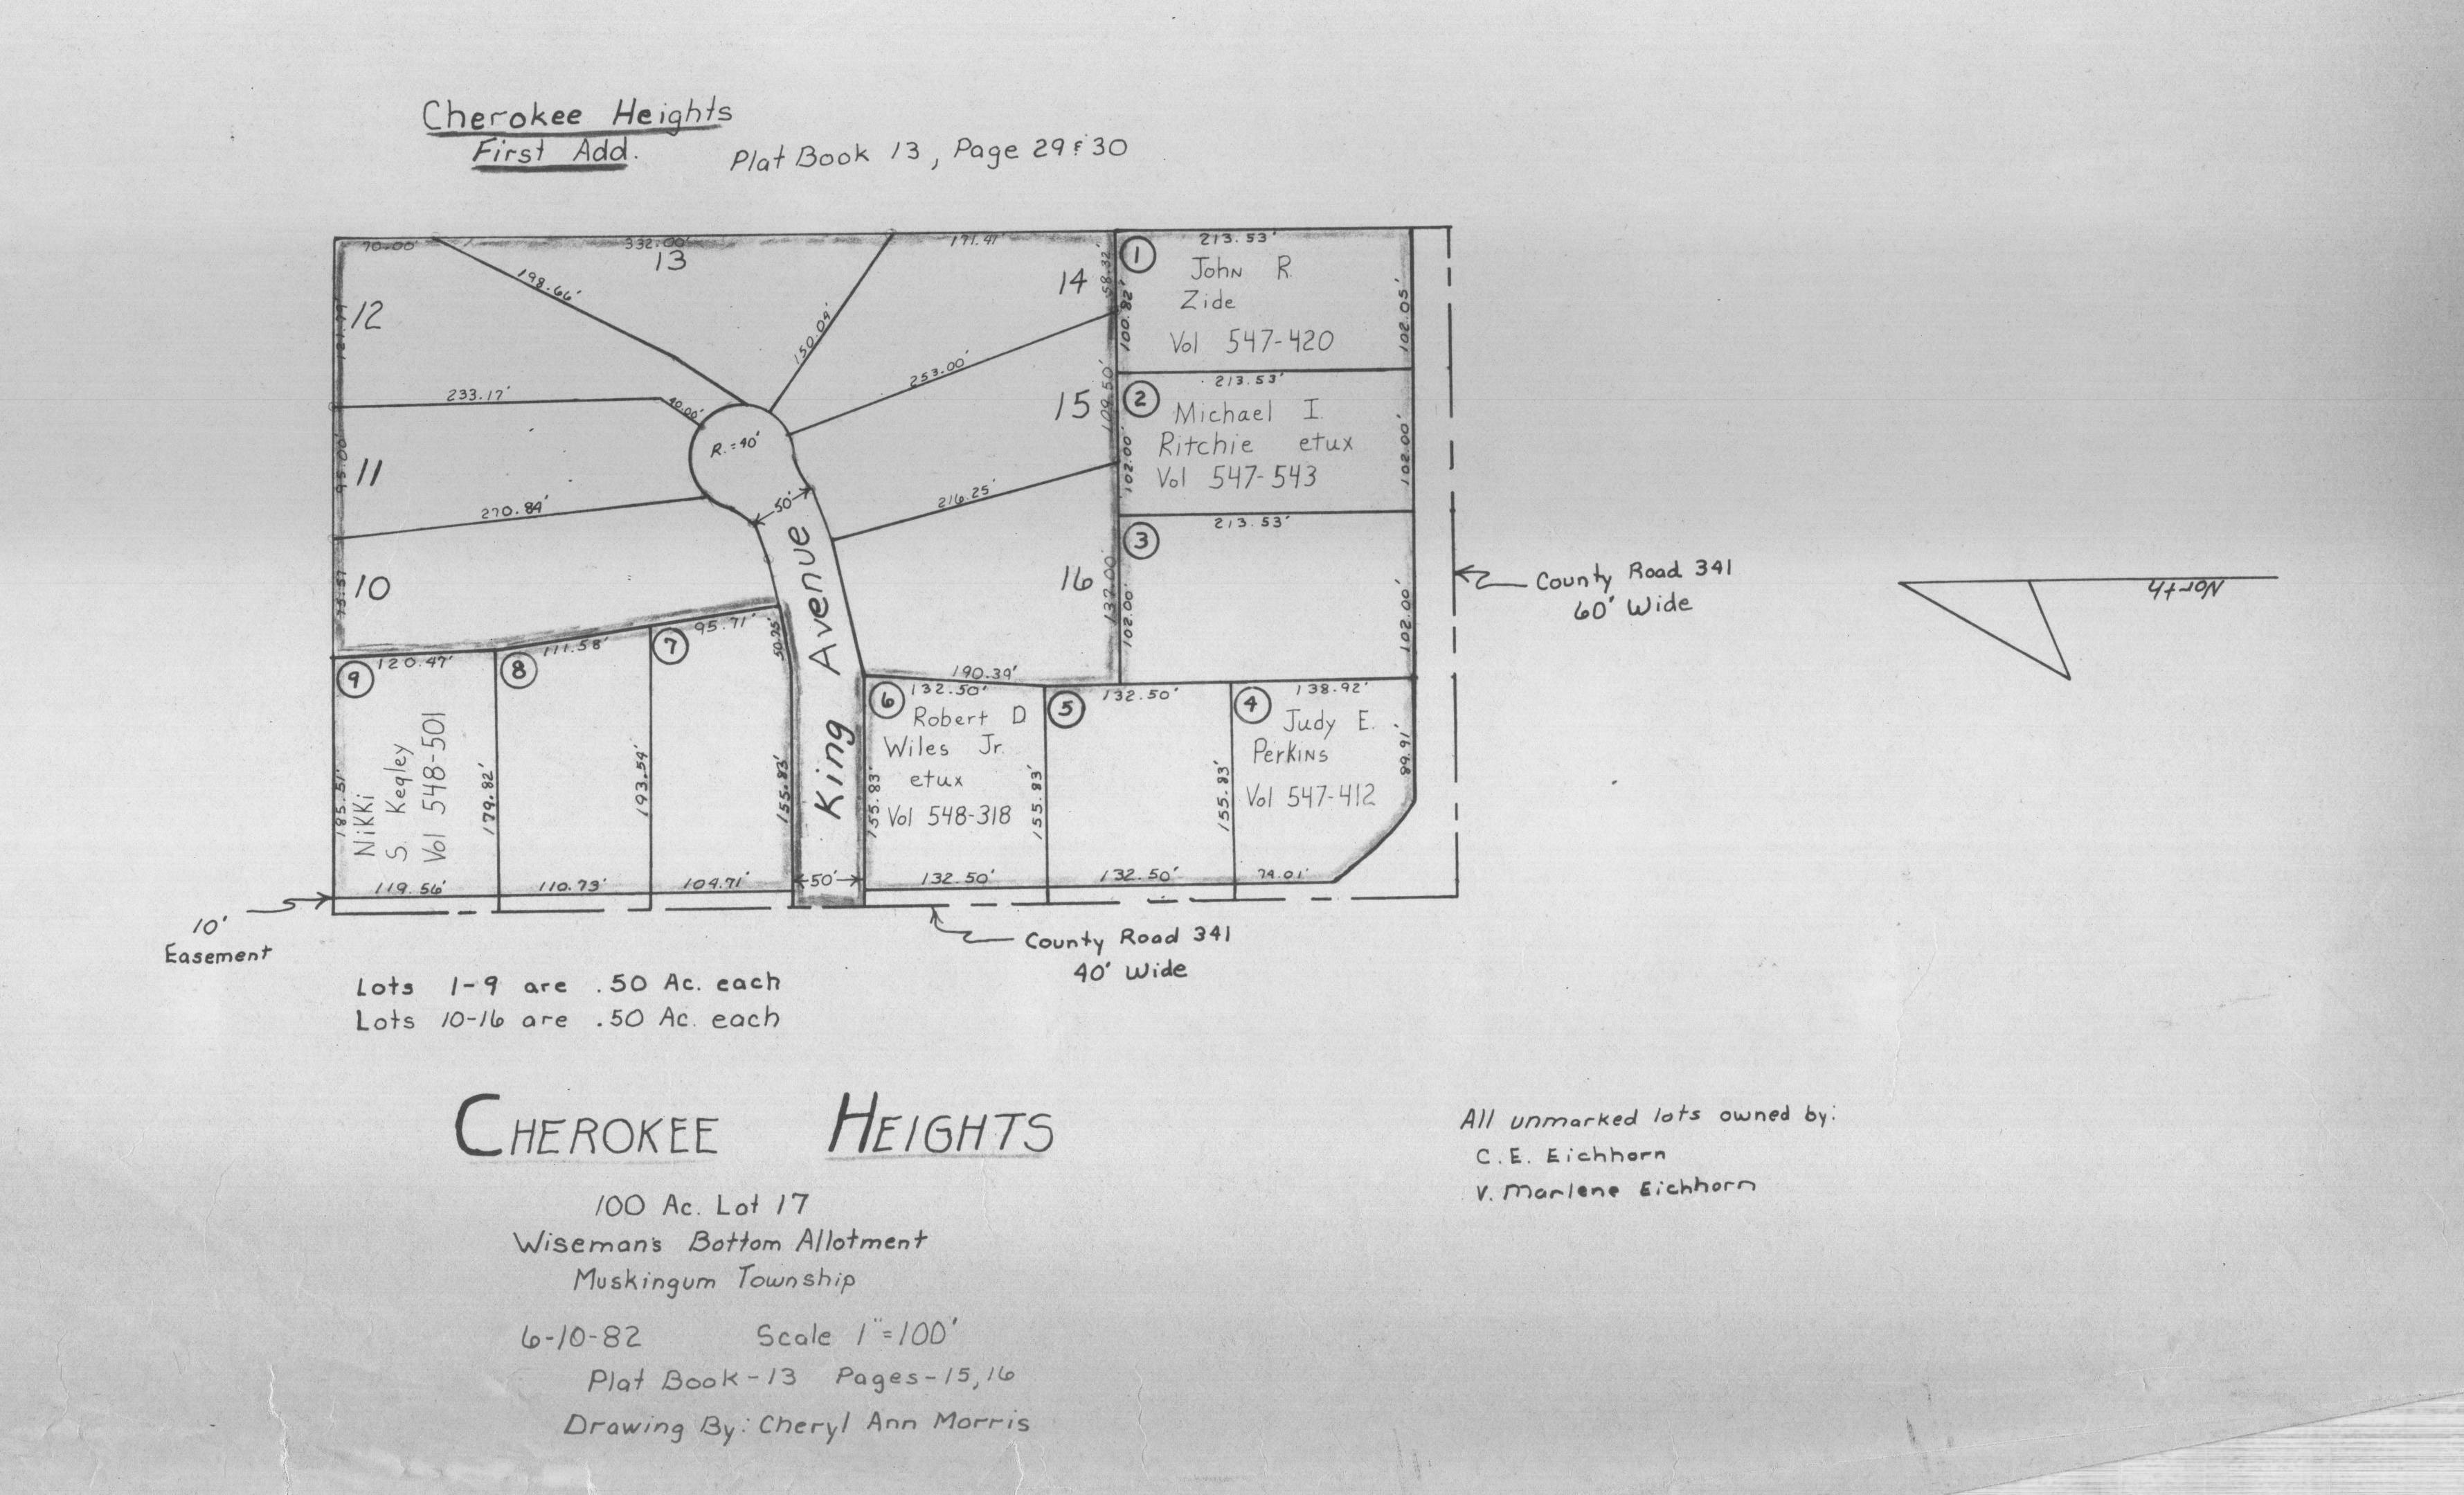 Cherokee Heights
First Add.
Plat Book 13, Page 29 & 30
70.00'
332.00'
171.41'
213.53'
13
198.66'
12
150.04'
14
58.32'
1
John R.
Zide
Vol 547-420
100.82'
102.05'
253.00'
233.17'
40.00'
R.=40'
15
109.50'
213.53'
2
Michael I.
Ritchie etux
Vol 547-543
102.00'
102.00'
11
95.00'
270.84'
50'
216.25'
213.53'
3
102.00'
102.00'
10
16
137.00'
County Road 341
60' Wide
North
King Avenue
120.47'
111.58'
95.71'
50.75'
190.39'
132.50'
132.50'
138.92'
9
8
7
6
5
4
Nikki
S. Kegley
Vol 548-501
Robert D
Wiles Jr.
etux
Vol 548-318
Judy E.
Perkins
Vol 547-412
185.51'
179.82'
193.54'
155.83'
155.83'
155.83'
155.83'
89.91'
119.56'
110.73'
104.71'
50'
132.50'
132.50'
74.01'
10'
Easement
County Road 341
40' Wide
Lots 1-9 are .50 Ac. each
Lots 10-16 are .50 Ac. each
CHEROKEE HEIGHTS
100 Ac. Lot 17
Wiseman's Bottom Allotment
Muskingum Township
6-10-82 Scale 1"=100'
Plat Book-13 Pages-15,16
Drawing By: Cheryl Ann Morris
All unmarked lots owned by:
C.E. Eichhorn
V. Marlene Eichhorn